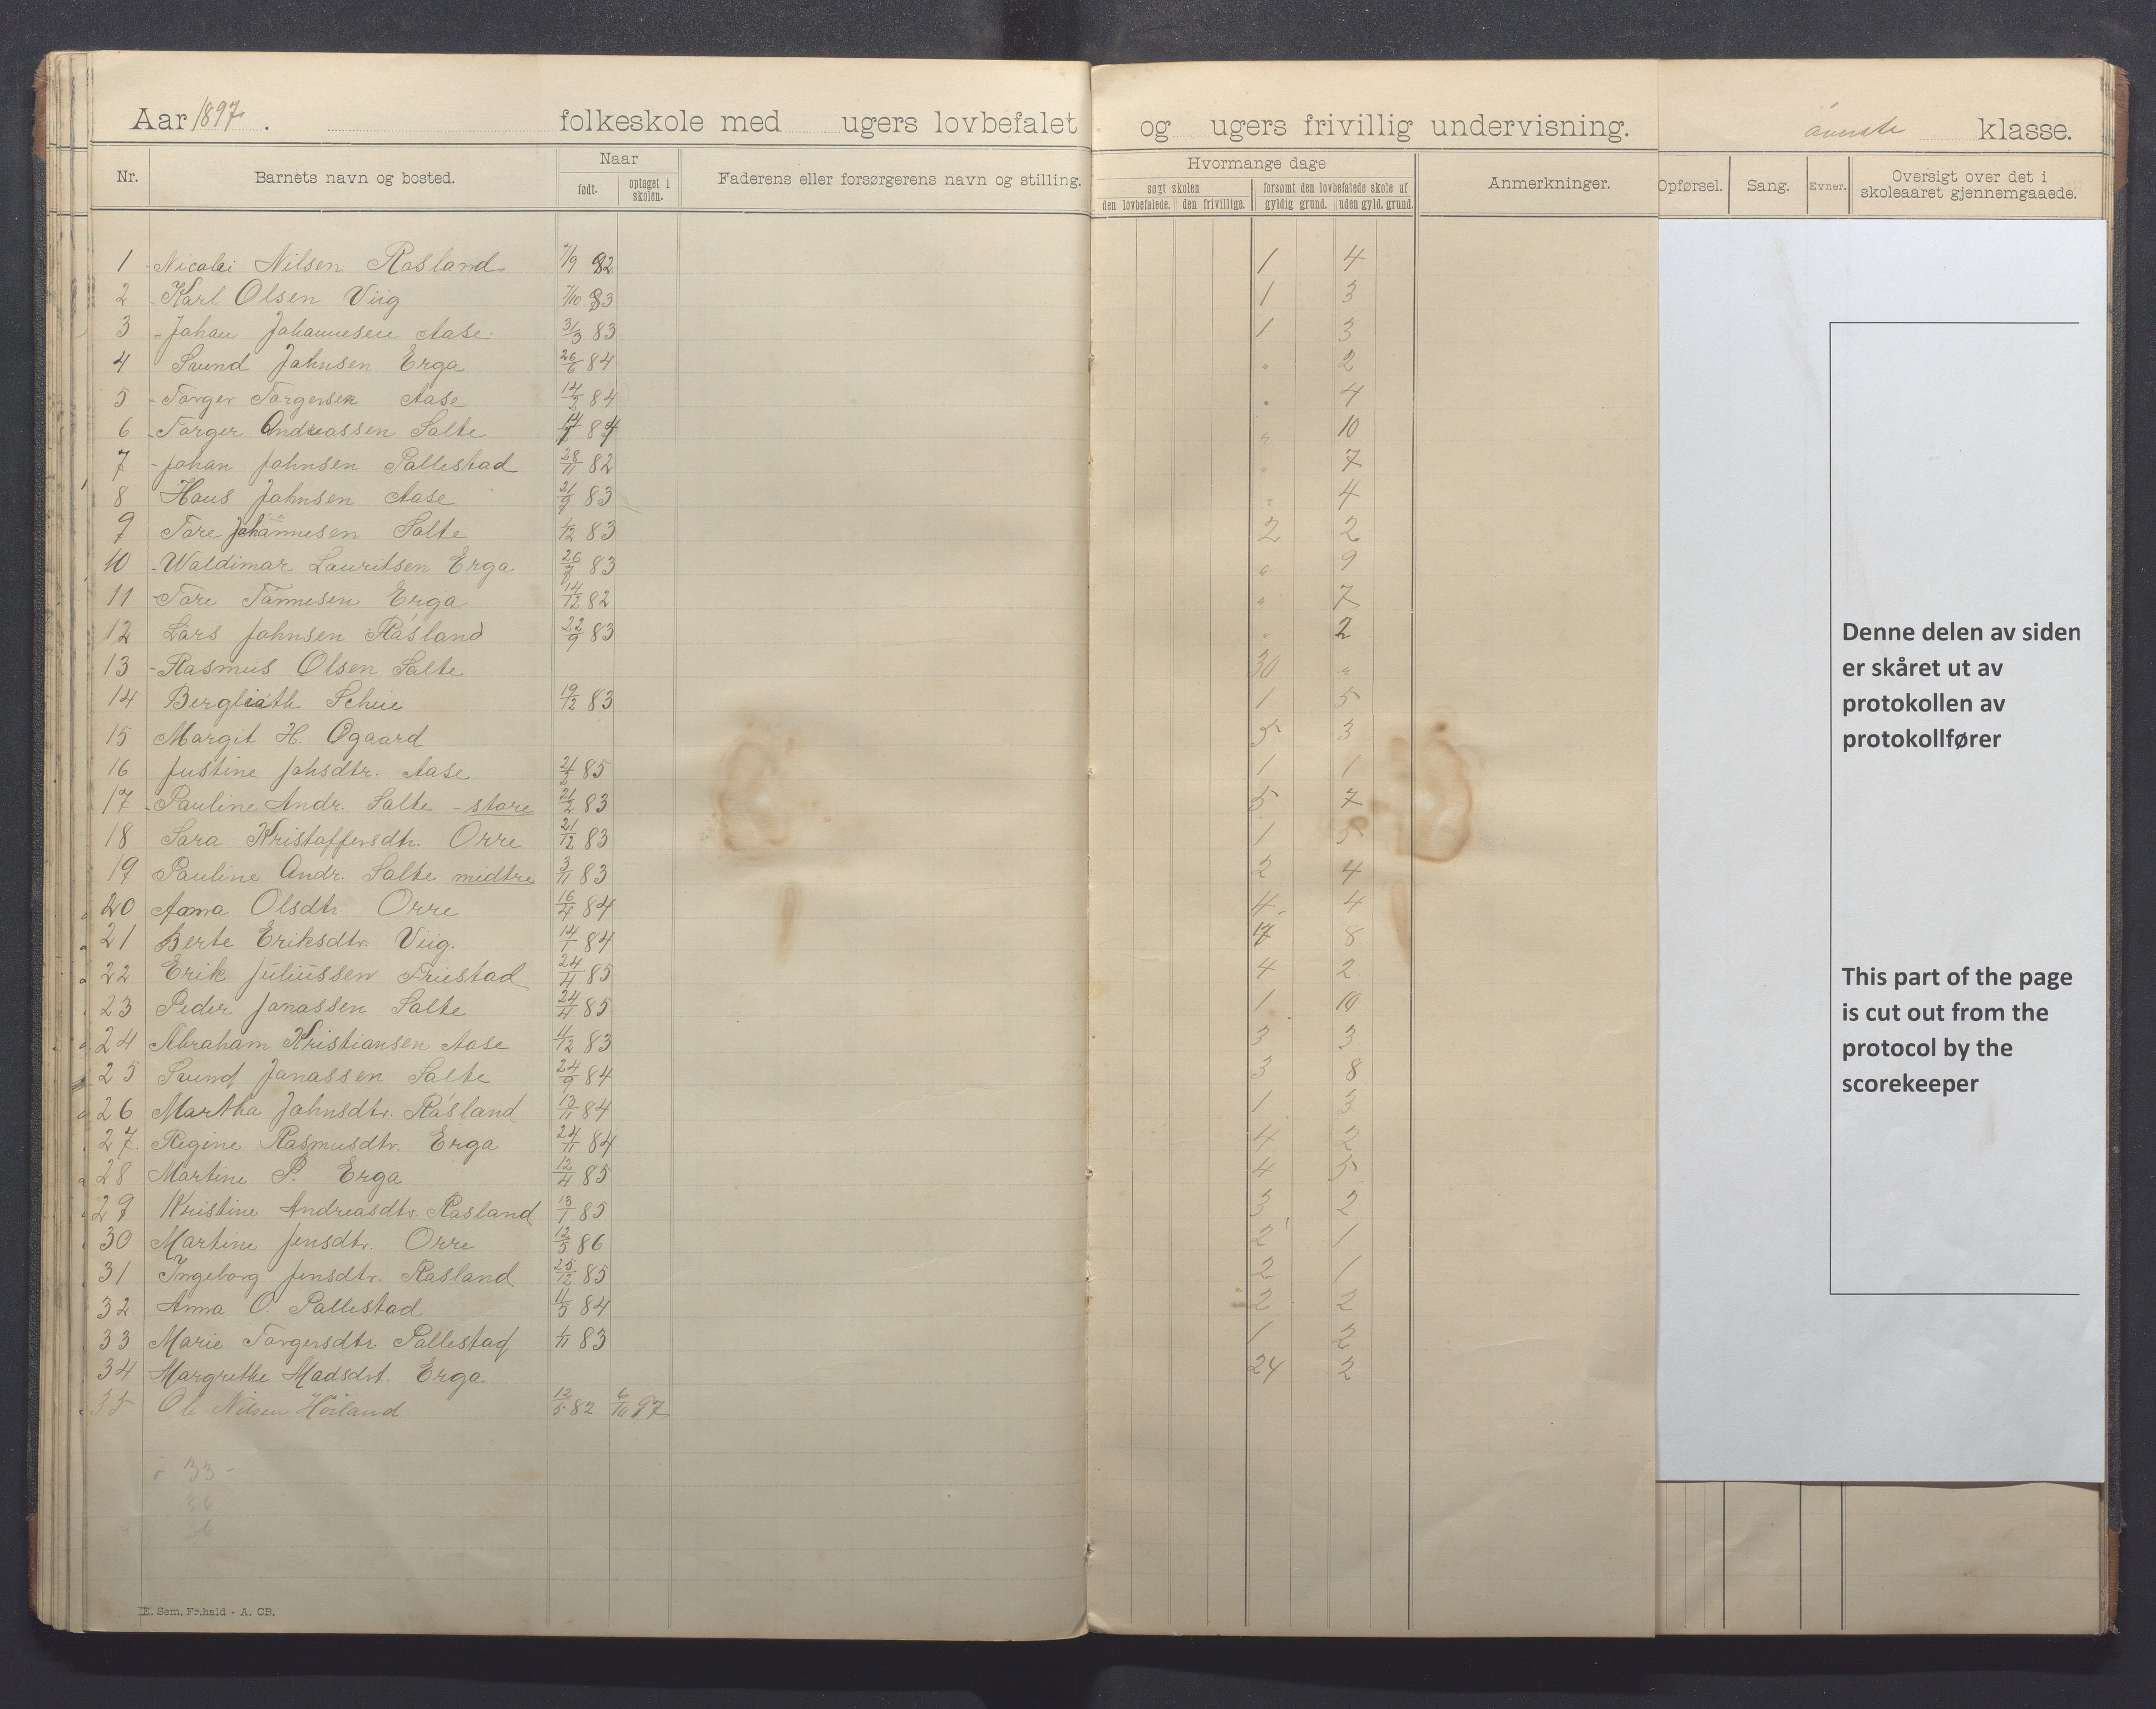 Aar 1897. folkeskole med ugers lovbefalet og ugers frivillig undervisning. øverste klasse.
Nr. Barnets navn og bosted. Naar født. optaget i skolen. Faderens eller forsørgerens navn og stilling. Hvormange dage søgt skolen den lovbefalede. den frivillige. forsømt den lovbefalede skole af gyldig grund. uden gyld. grund. Anmerkninger. Opførsel. Sang. Evner. Oversigt over det i skoleaaret gjennemgaaede.
1 Nicolai Nilsen Rosland 7/9 82 1 4
2 Karl Olsen Viig 7/10 83 1 3
3 Johan Johannesen Aase 31/3 83 1 3
4 Svend Johnsen Erga 26/6 84 " 2
5 Torger Torgersen Aase 84 " 4
6 Torger Andreassen Salte 84 " 10
7 Johan Johnsen Pallestad 28/11 82 " 7
8 Hans Johnsen Aase 21/9 83 " 4
9 Tore Johannesen Salte 1/12 83 2 2
10 Waldimar Lauritsen Erga 83 " 9
11 Tore Tønnesen Erga 14/12 82 " 7
12 Lars Johnsen Råsland 22/9 83 " 2
13 Rasmus Olsen Salte 30 "
14 Bergliath Schie 19/12 83 1 5
15 Margit H. Ogaard 5 3
16 Justine Johsdtr. Aase 85 1 1
17 Pauline Andr. Salte - store 21/2 83 5 7
18 Sara Kristoffersdtr. Orre 21/12 83 1 5
19 Pauline Andr. Salte midtre 3/11 83 2 4
20 Anna Olsdtr. Orre 16/4 84 4 4
21 Berte Eriksdtr. Viig. 14/1 84 8
22 Erik Juliussen Friestad 24/4 85 4 2
23 Peder Jonassen Salte 24/4 85 1 10
24 Abraham Kristiansen Aase 11/12 83 3 3
25 Svend Jonassen Salte 24/9 84 3 8
26 Martha Johnsdtr. Råsland 13/11 84 1 3
27 Regine Rasmusdtr. Erga 24/11 84 4 2
28 Martine P. Erga 12/4 85 4 5
29 Kristine Andreasdtr. Rasland 13/1 85 3 2
30 Martine Jensdtr. Orre 12/5 86 2 1
31 Ingeborg Jensdtr. Rasland 25/12 85 2 1
32 Anna O. Pallestad 11/5 84 2 2
33 Marie Torgersdtr. Pallestad 1/11 83 1 2
34 Margrethe Madsdrt. Erga 24 2
35 Ole Nilsen Höiland 12/5 82 6/10 97
33 -
36
E. Sem, Fr.hald - A. CB.
Denne delen av siden
er skåret ut av
protokollen av
protokollfører
This part of the page
is cut out from the
protocol by the
scorekeeper